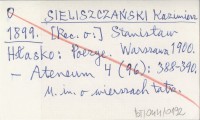 O SIELISZCZAŃSKI Kazimierz
1899. [Rec. o:] Stanisław
Hłasko: Poezye. Warszawa 1900.
— Ateneum 4 (96): 388-390.
M. in. o wierszach tatr.